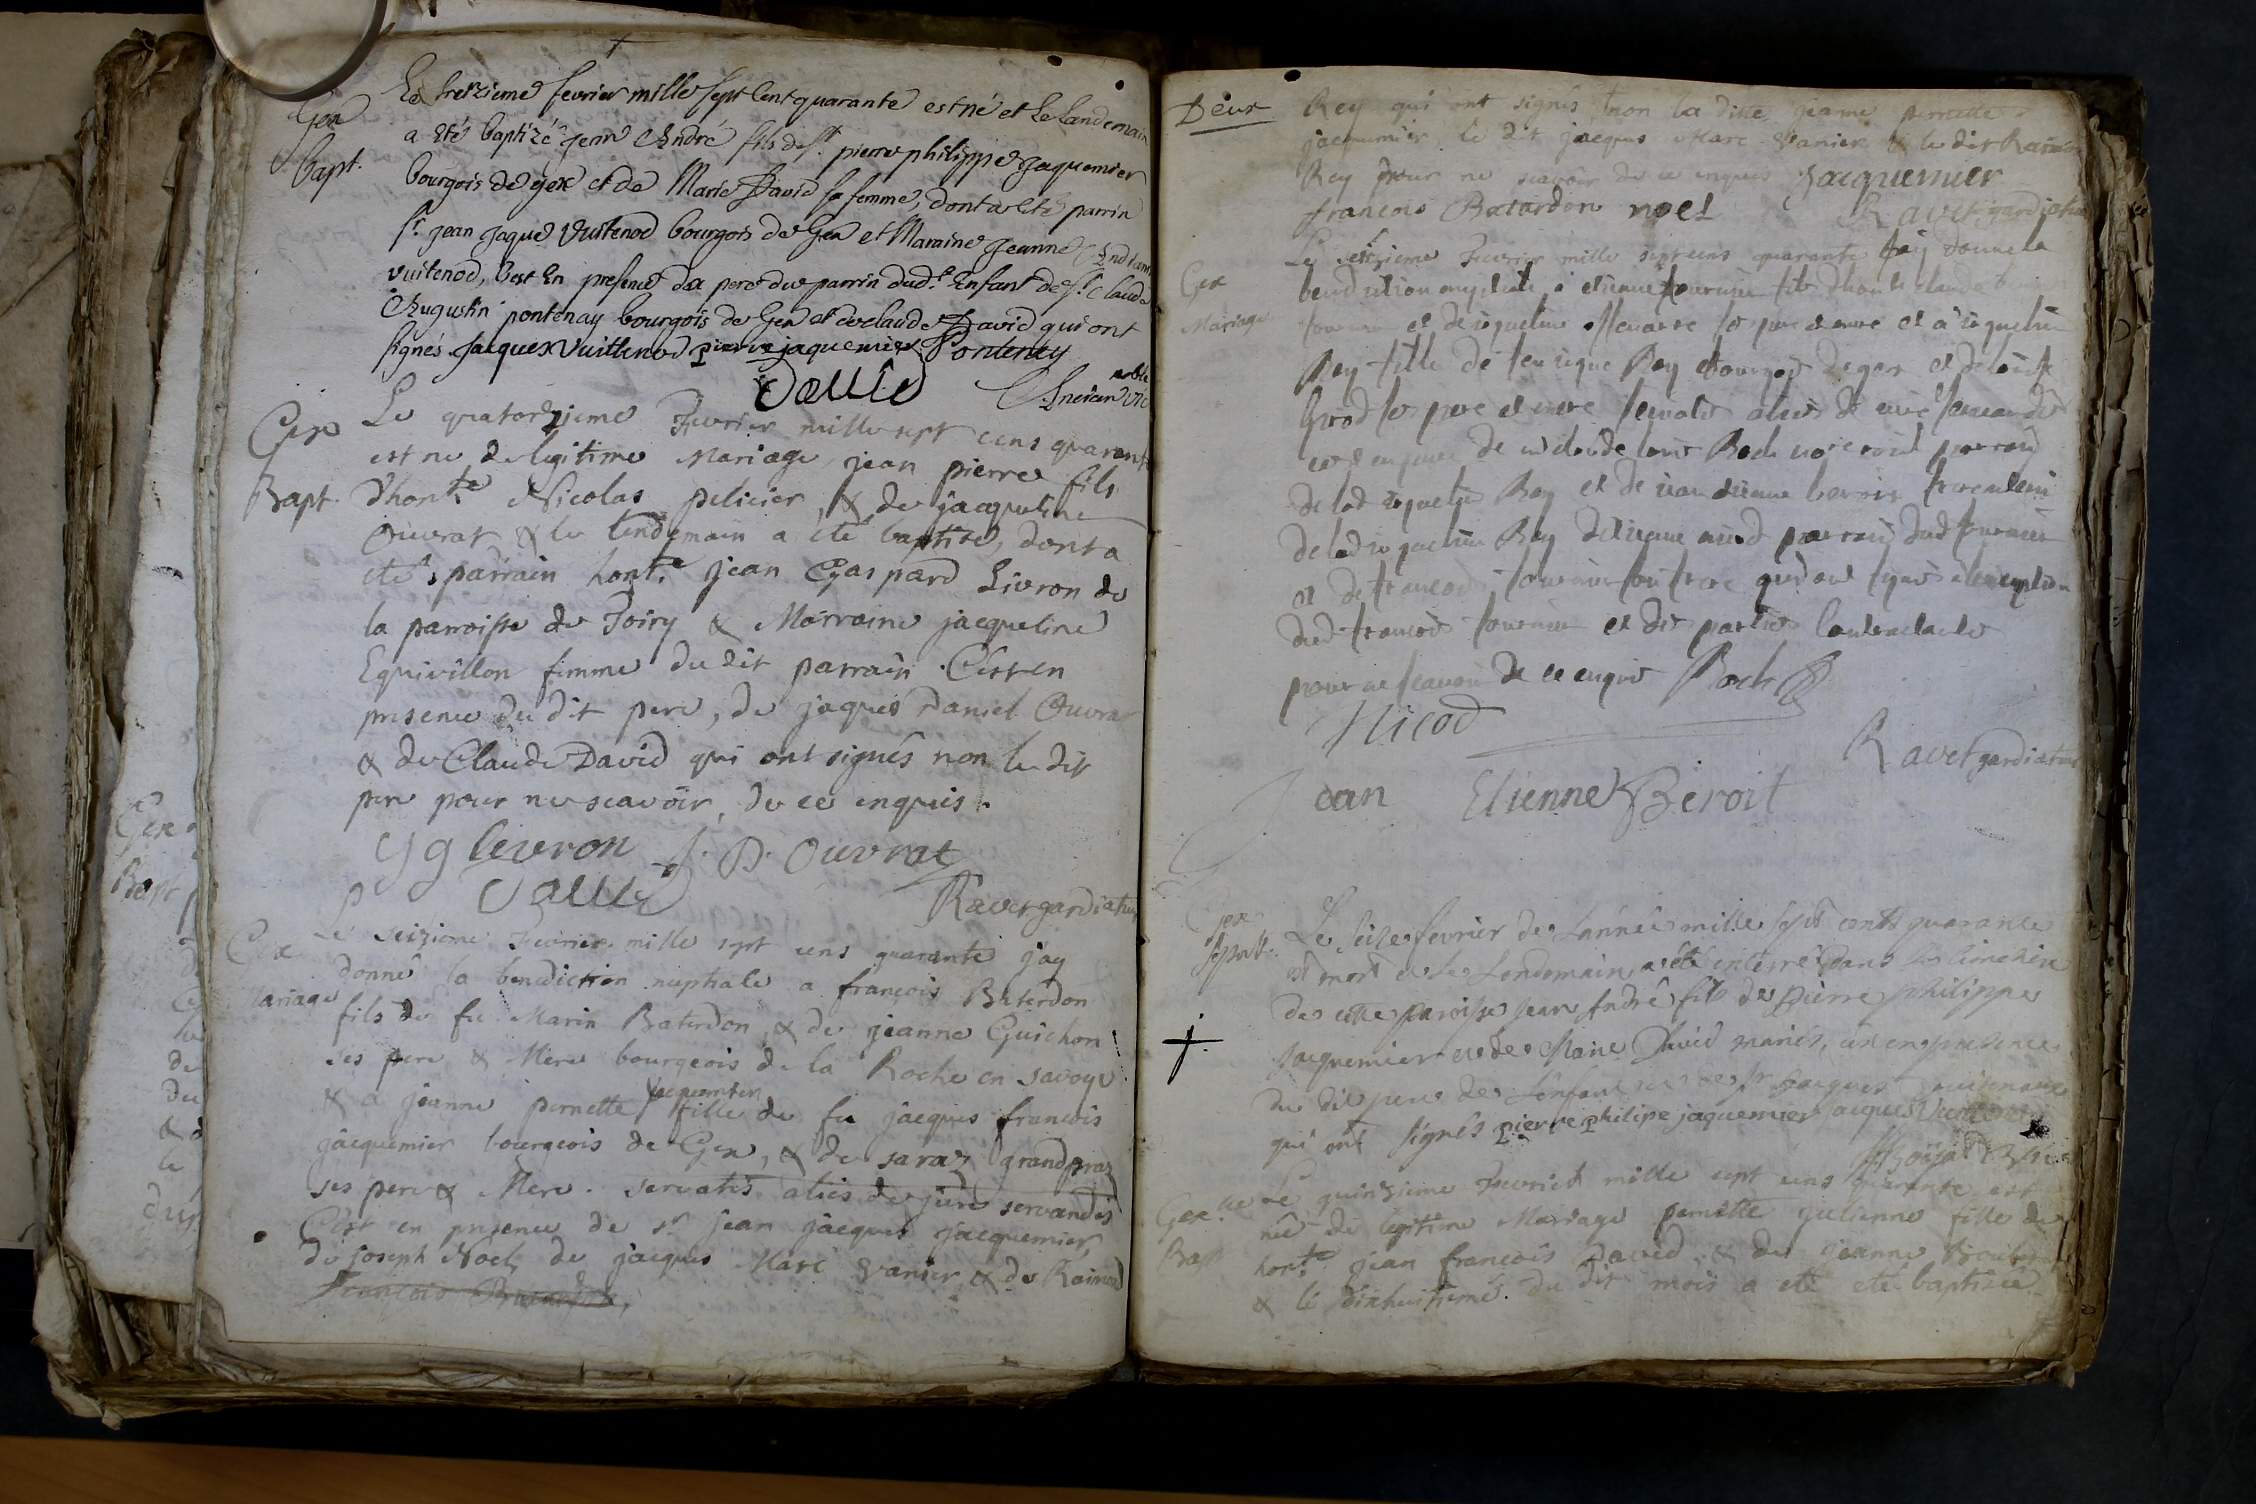 Gex
Bapt.
Le treizieme fevrier mille sept Cent quarante est né et Le Landemain
a etés baptizé jean André fils de sr. pierre philippe Jaquemier
bourgois de gex et de Marie David sa femme, dont a eté parrin
sr. jean Jaque Vuitenod bourgois de Gex et Maraine Jeanne
Vuitenod, C'est En presence du pere du parrin dud.t Enfant de sr. Claude
Augustin pontenay bourgois de Gex et de claude David qui ont
signés. Jacques Vuittenod pierre jaquemier Pontenay
David
Gex
Bapt.
Le quatorzieme Fevrier mille sept cens quarante
est ne de legitime Mariage jean pierre fils
d'hon.te Nicolas pelicier, & de jacqueline
Ouvrat & le lendemain a été baptisé, dont a
eté parrain hon.te jean Gaspard Livron de
la parroisse de Foiry & Marraine jacqueline
Equivillon femme du dit parrain. C'est en
presence du dit pere, de jaques Daniel Ouvrat
& de Claude David qui ont signés non le dit
pere pour ne scavoir, de ce enquis.
J g levron J. D. Ouvrat
David
Ravet gardiateur
Gex
Mariage
Le seizieme Fevrier mille sept cens quarante j'ay
donné la benediction nuptiale a francois Batardon
fils de fu Marin Batardon, & de jeanne Guichon
ses pere & Mere bourgeois de la Roche en Savoye
& a jeanne pernette jacquemier fille de fu jacques francois
jacquemier bourgeois de Gex, & de saraz grandpraz
ses pere & Mere. servatis aliis de jure servandis
C'est en presence de sr. jean jacques jacquemier,
de joseph Noel, de jacques Marc Vanier & de Raimond
francois Batardon,
Deux
Rey qui ont signés non la dite jeanne pernette
jacquemier le dit jacques Marc Vanier & le dit Raimond
Rey pour ne scavoir de ce enquis Jacquemier
francois Batardon noel Ravet gardiateur
Gex
Mariage
Le seizieme Fevrier mille sept cens quarante j'ay donné la
benediction nuptiale à etienne fournier fils d'hon.te claude
fournier et de jaqueline ses pere et mere et a jaqueline
Rey fille de feu Rey bourgois de gex et de
ses pere et mere servatis aliis de jure servandis
c'est en presence de claude louis Roch parrain
de lad. jaqueline Rey et de jean etienne
de lad. jaqueline Rey parrain dud. fournier
et de francois fournier son frere qui ont signé à l'exception
dud. francois fournier et des parties contractantes
pour ne scavoir de ce enquis Roch
Nicod
Ravet gardiateur
Jean Etienne Beroit
Gex
Sepult.
Le Seize fevrier de L'année mille sept cents quarante
est mort et le Lendemain a été enterré dans le cimetière
de cette paroisse jean André fils de pierre philippe
Jacquemier et de Marie David mariés, c'est en presence
du dit pere de L'enfant et de sr. Jacques
qui ont signés pierre philipe jaquemier jacques Vuittenod
Gex
Bap
Le quinzieme Fevrier mille sept cens quarante est
née de legitime Mariage pernette julienne fille de
hon.te jean francois David & de jeanne
& le dixhuitieme du dit mois a eté eté baptisée